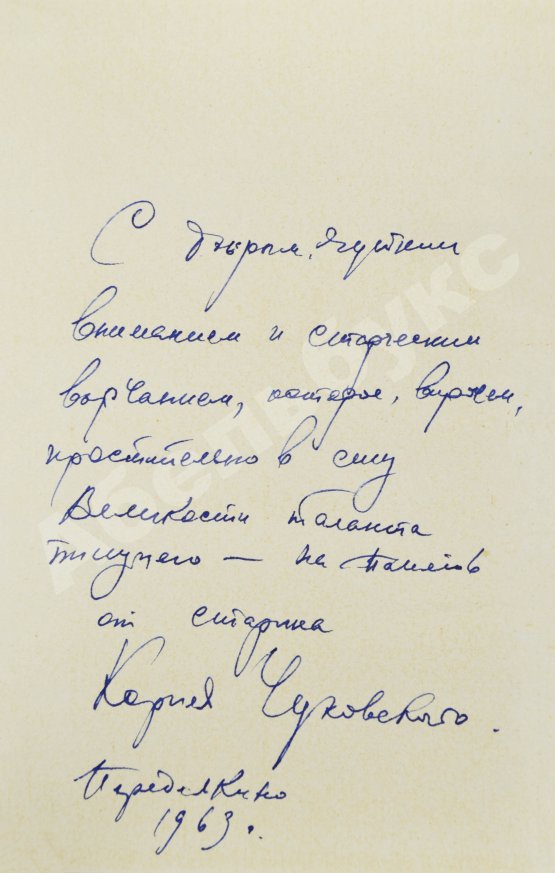 С добрым, чутким
вниманием и старческим
ворчанием, которое, впрочем,
простительно в силу
Великости таланта
пишущего — на память
от старика
Корнея Чуковского.
Переделкино
1963.
Абельбукс